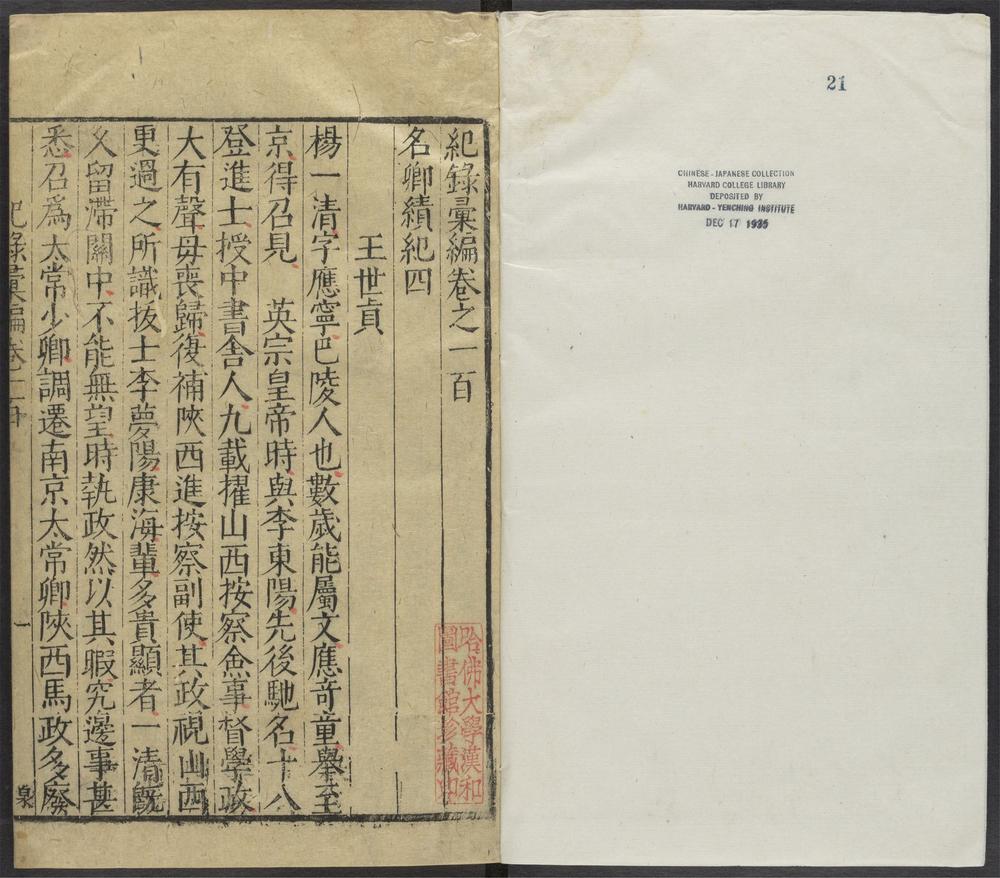 21
CHINESE - JAPANESE COLLECTION
HARVARD COLLEGE LIBRARY
DEPOSITED BY
HARVARD - YENCHING INSTITUTE
DEC 17 1935
紀錄彙編卷之一百
名卿績紀四
王世貞
楊一清字應寧巴陵人也數歲能屬文應奇童舉至
京得召見 英宗皇帝時與李東陽先後馳名十八
登進士授中書舍人九載擢山西按察僉事督學政
大有聲毋喪歸復補陝西進按察副使其政視山西
更過之所識拔士李夢陽康海輩多貴顯者一清既
乆留滯關中不能無望時執政然以其暇究邊事甚
悉召爲太常少卿調遷南京太常卿陝西馬政多廢
紀錄彙編卷一百
一
泉
哈佛大學漢和
圖書館珍藏印